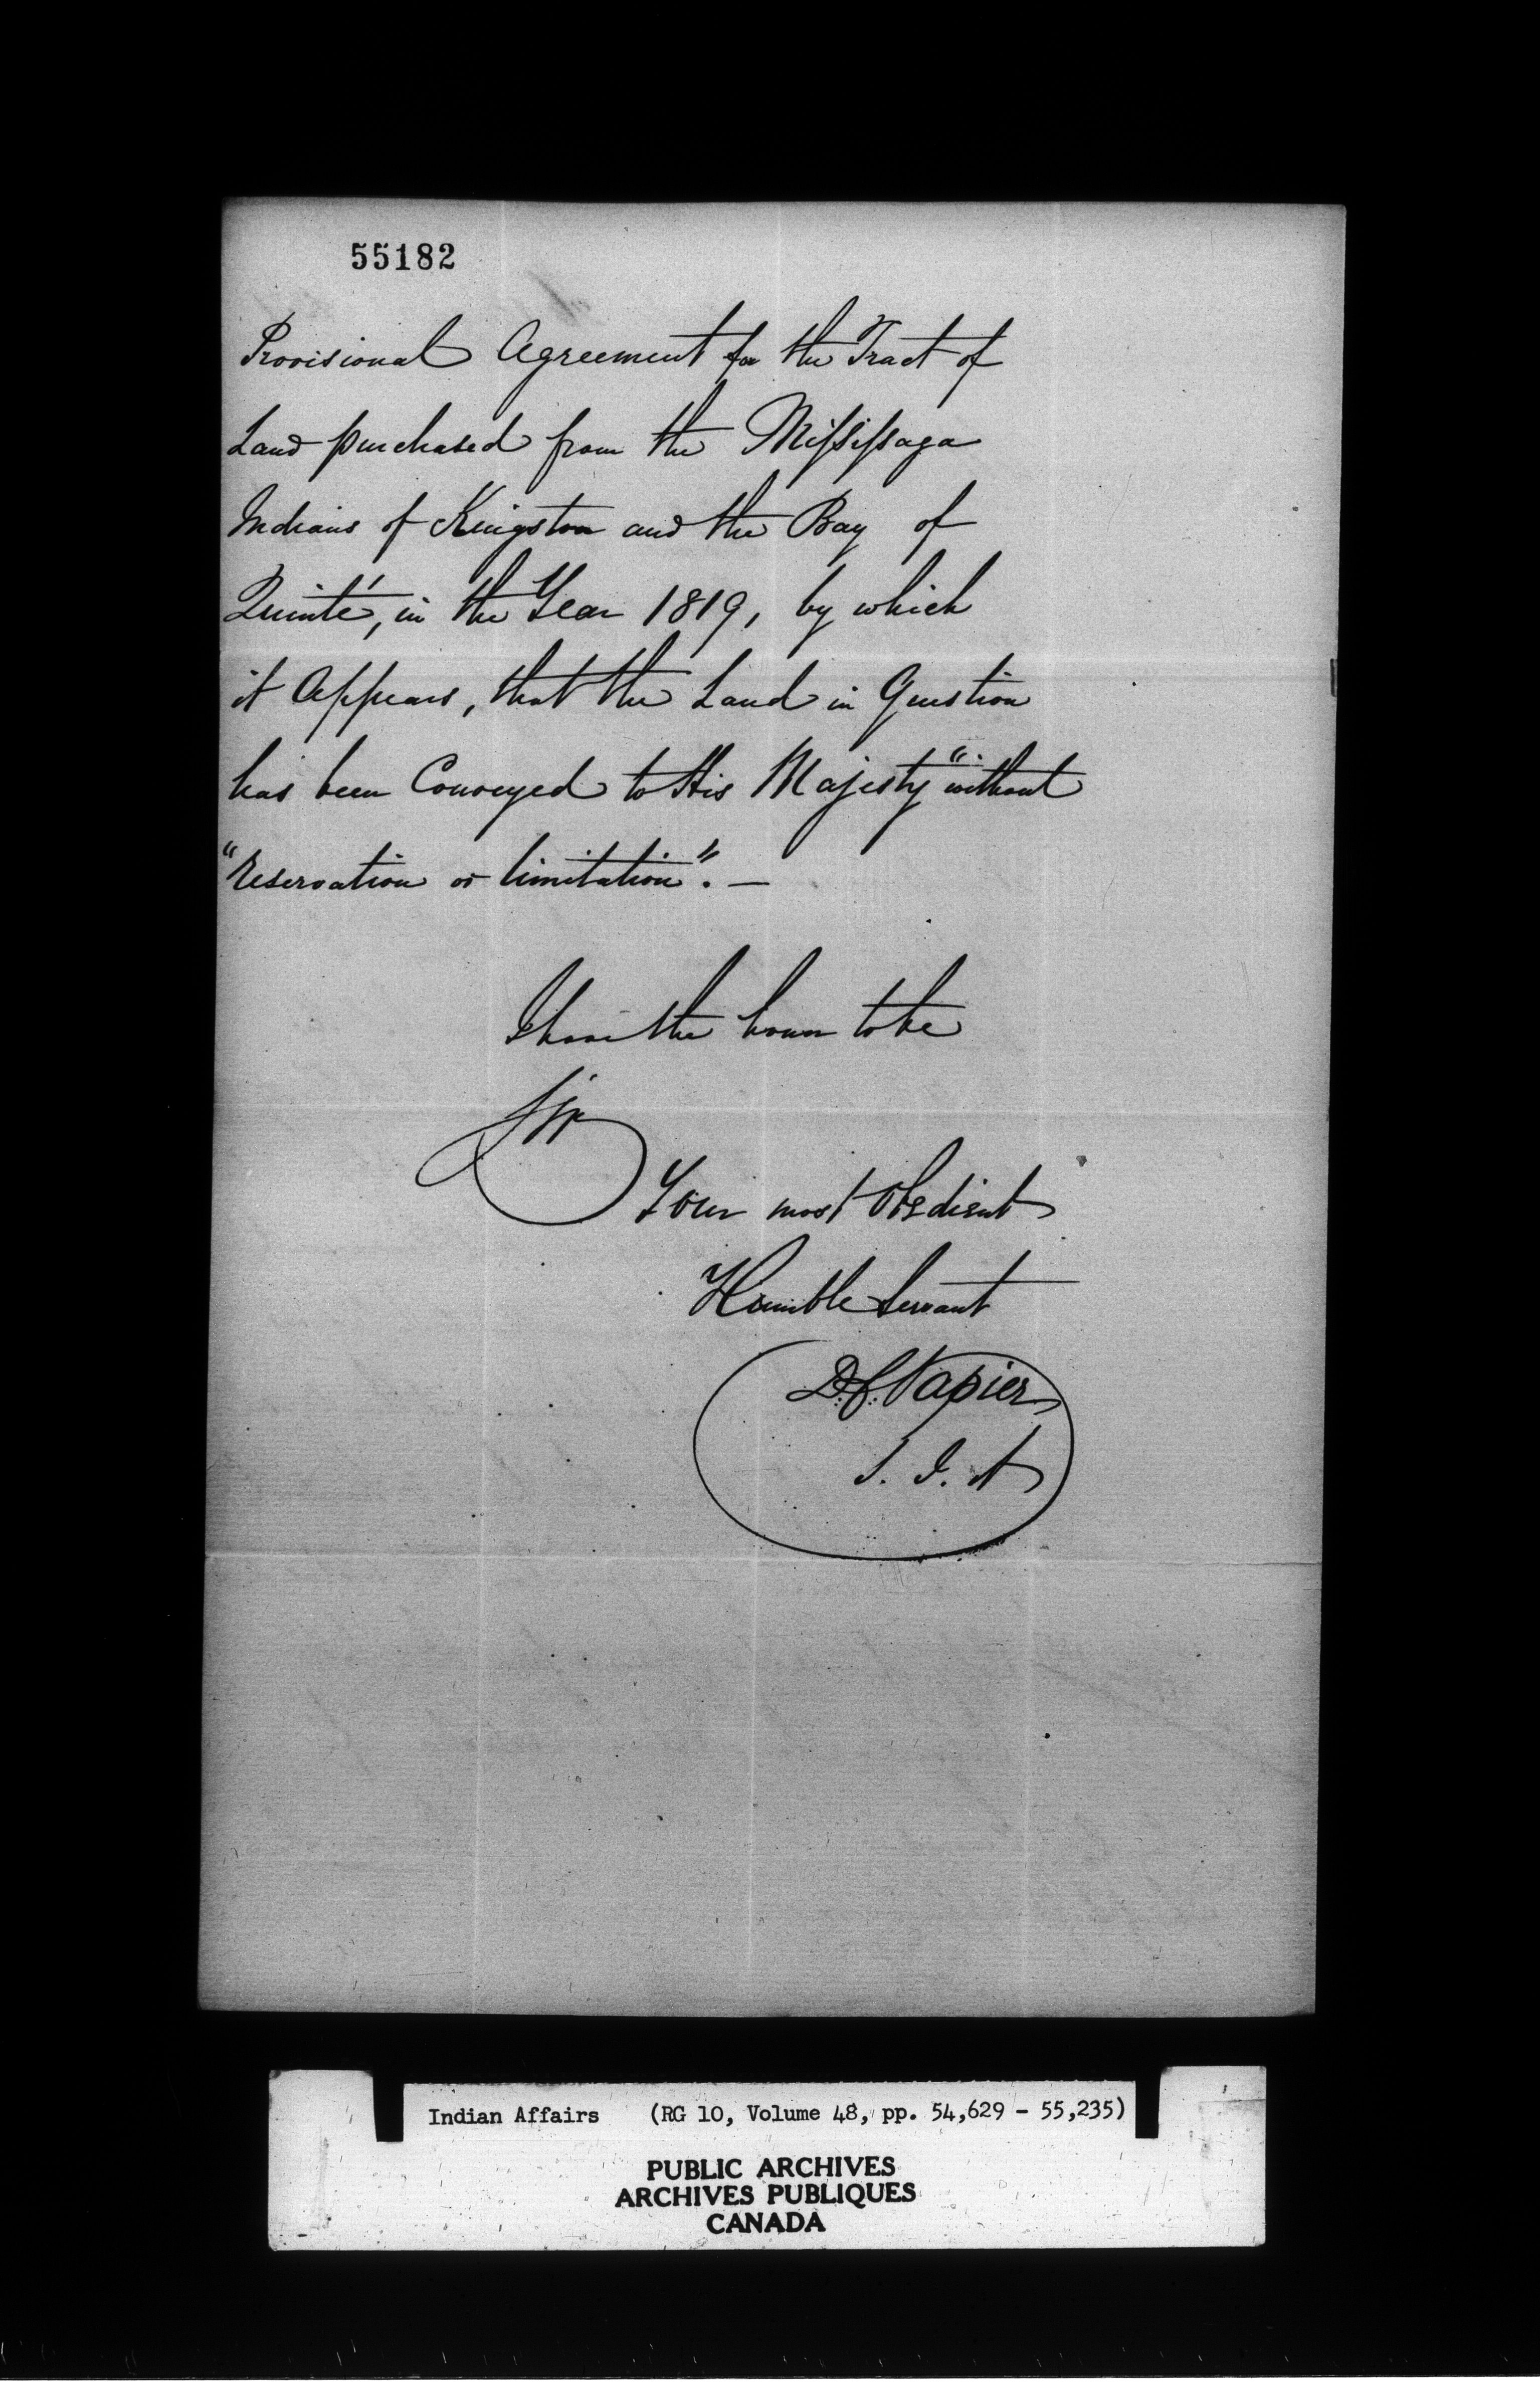 55182
Provisional Agreement for the Tract of
Land purchased from the Missisaga
Indians of Kingston and the Bay of
Quinté, in the Year 1819, by which
it Appears, that the Land in Question
has been Conveyed to His Majesty "without
"reservation or limitation". —
I have the honor to be
Sir
Your most Obedient
Humble Servant
D. C. Napier
S. I. A
Indian Affairs (RG 10, Volume 48, pp. 54,629 - 55,235)
PUBLIC ARCHIVES
ARCHIVES PUBLIQUES
CANADA